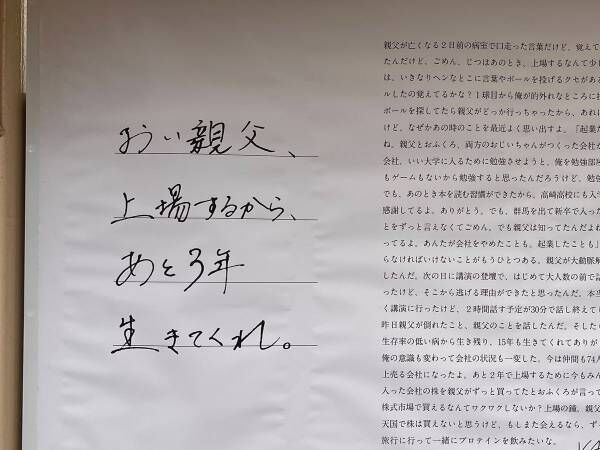 おい親父、
上場するから、
あと3年
生きてくれ。
親父が亡くなる2日前の病室で口走った言葉だけど、覚えて
たんだけど、ごめん、じつはあのとき、上場するなんて少し
は、いきなりヘンなとこに言葉やボールを投げるクセがある
ルしたの覚えてるかな？1球目から俺が的外れなところに投
ボールを探してたら親父がどっか行っちゃったから、あれに
けど、なぜかあの時のことを最近よく思い出すよ。「起業だ
ね。親父とおふくろ、両方のおじいちゃんがつくった会社が
会社。いい大学に入るために勉強させようと、俺を勉強部屋
もゲームもないから勉強すると思ったんだろうけど、勉強
でも、あのとき本を読む習慣ができたから、高崎高校にも入学
感謝してるよ。ありがとう。でも、群馬を出て新卒で入った
とをずっと言えなくてごめん。でも親父は知ってたんだよね
ってるよ。あんたが会社をやめたことも。起業したことも」
らなければいけないことがもうひとつある。親父が大動脈解
したんだ。次の日に講演の登壇で、はじめて大人数の前で話
ったけど、そこから逃げる理由ができたと思ったんだ。本当
く講演に行ったけど、2時間話す予定が30分で話し終えてし
昨日親父が倒れたこと、親父のことを話したんだ。そしたら
生存率の低い病から生き残り、15年も生きてくれてありが
俺の意識も変わって会社の状況も一変した。今は仲間も74人
上売る会社になったよ。あと2年で上場するために今もみん
入った会社の株を親父がずっと買ってたとおふくろが言って
株式市場で買えるなんてワクワクしないか？上場の鐘、親父
天国で株は買えないと思うけど、もしまた会えるなら、ず
旅行に行って一緒にプロテインを飲みたいな。